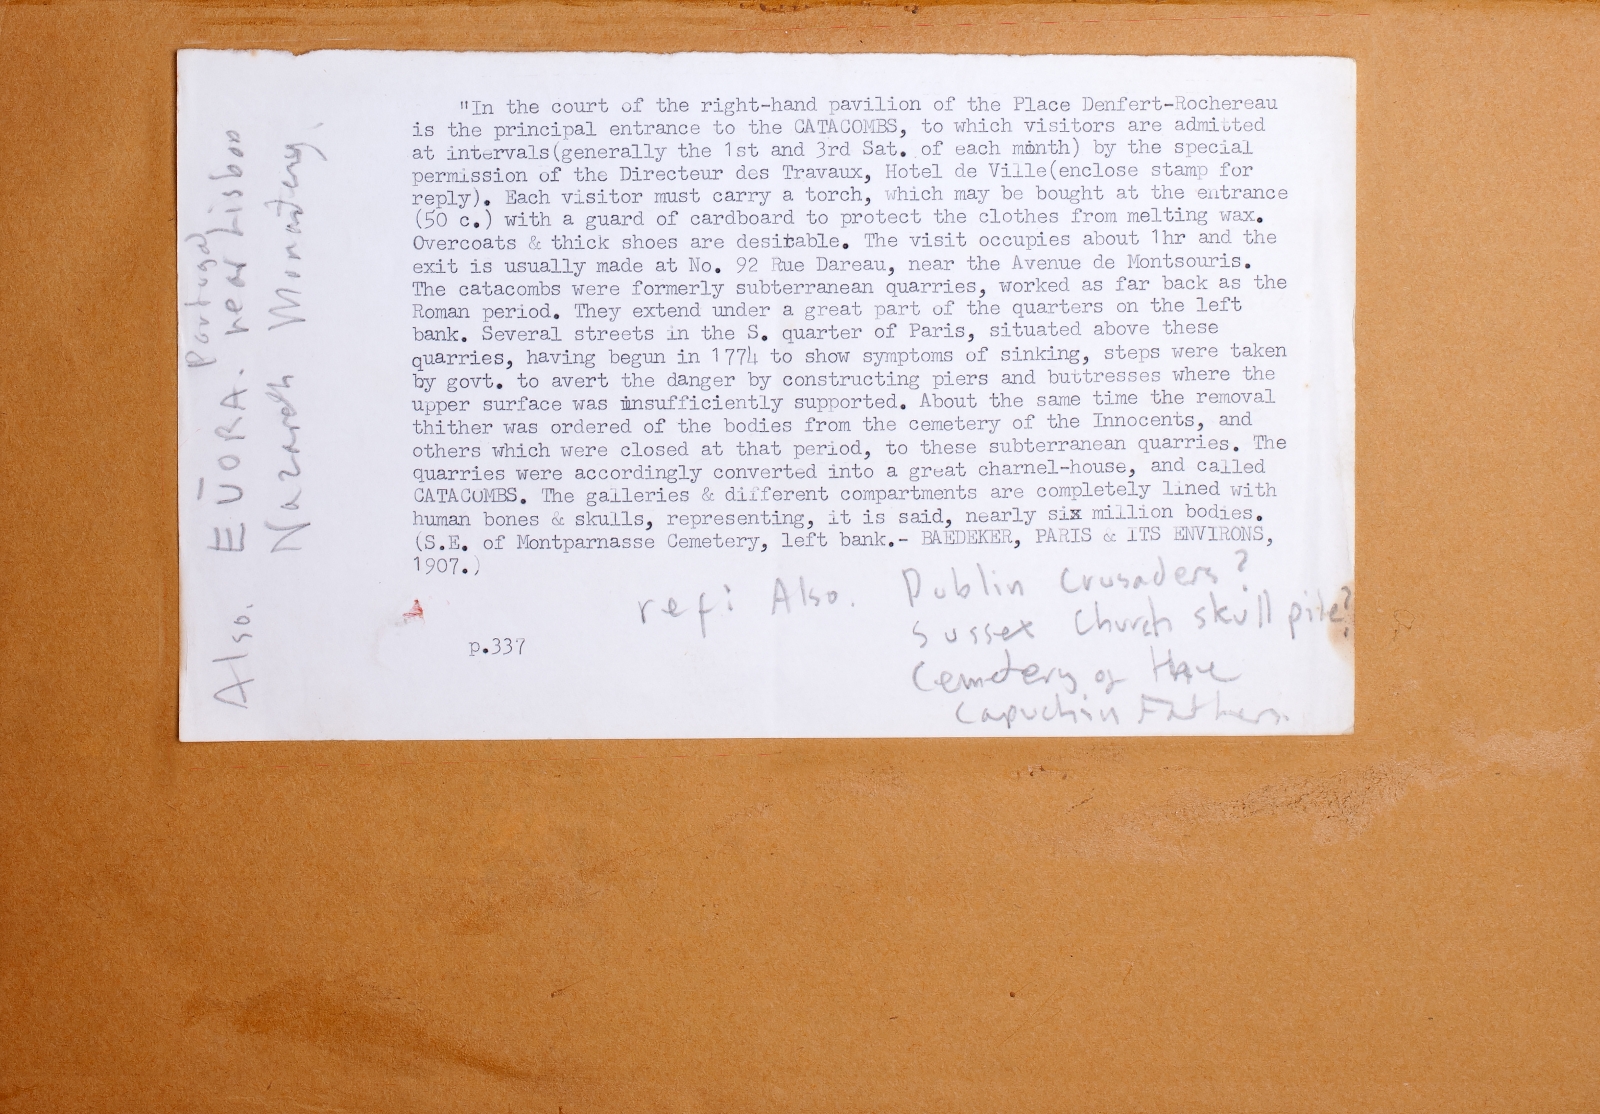 "In the court of the right-hand pavilion of the Place Denfert-Rochereau
is the principal entrance to the CATACOMBS, to which visitors are admitted
at intervals(generally the 1st and 3rd Sat. of each month) by the special
permission of the Directeur des Travaux, Hotel de Ville(enclose stamp for
reply). Each visitor must carry a torch, which may be bought at the entrance
(50 c.) with a guard of cardboard to protect the clothes from melting wax.
Overcoats & thick shoes are desirable. The visit occupies about 1hr and the
exit is usually made at No. 92 Rue Dareau, near the Avenue de Montsouris.
The catacombs were formerly subterranean quarries, worked as far back as the
Roman period. They extend under a great part of the quarters on the left
bank. Several streets in the S. quarter of Paris, situated above these
quarries, having begun in 1774 to show symptoms of sinking, steps were taken
by govt. to avert the danger by constructing piers and buttresses where the
upper surface was insufficiently supported. About the same time the removal
thither was ordered of the bodies from the cemetery of the Innocents, and
others which were closed at that period, to these subterranean quarries. The
quarries were accordingly converted into a great charnel-house, and called
CATACOMBS. The galleries & different compartments are completely lined with
human bones & skulls, representing, it is said, nearly six million bodies.
(S.E. of Montparnasse Cemetery, left bank.- BAEDEKER, PARIS & ITS ENVIRONS,
1907.)
ref: Also. Dublin Crusaders?
Sussex Church skull pile?
Cemetery of the
Capuchin Fathers.
p.337
Portugal
Also. EVORA. near Lisbon
Nazareth Monastery.